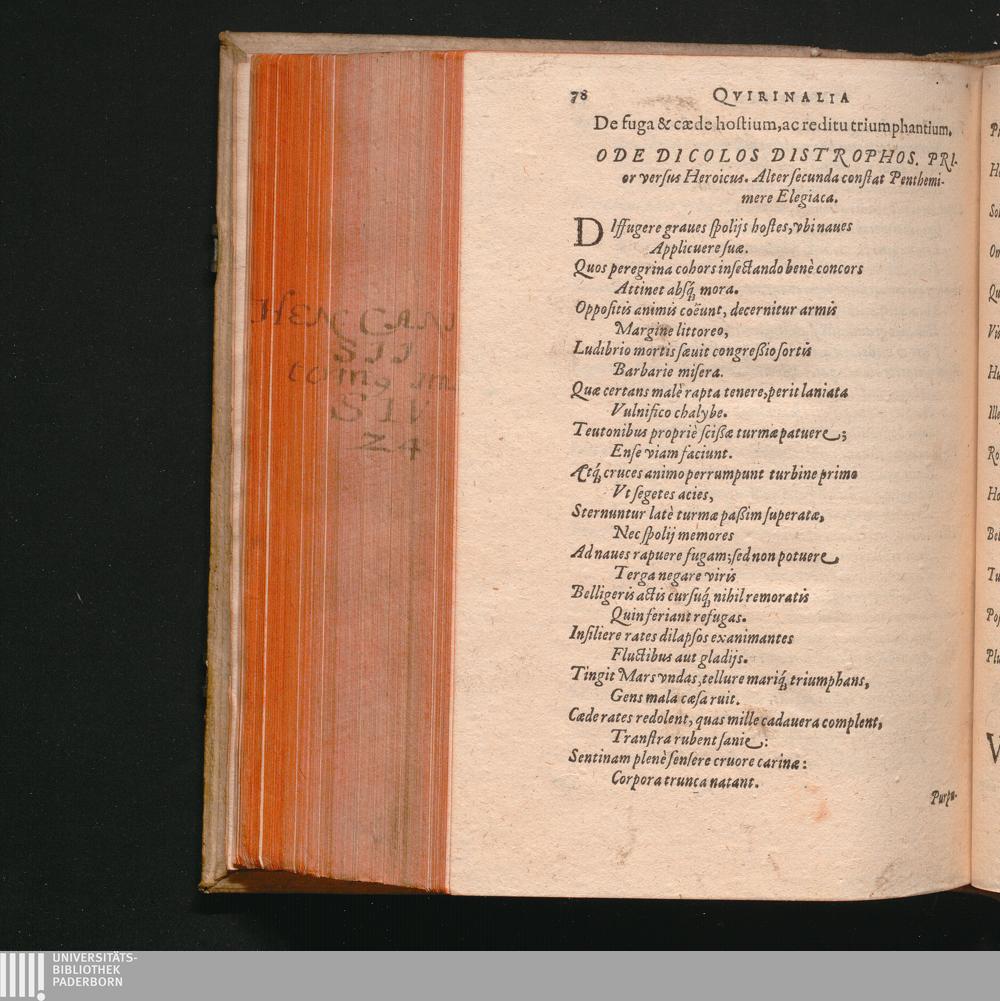 78 QVIRINALIA
De fuga & cæde hoſtium, ac reditu triumphantium.
ODE DICOLOS DISTROPHOS. PRI-
or verſus Heroicus. Alter ſecunda conſtat Penthemi-
mere Elegiaca.
DIffugere graues ſpolijs hoſtes, vbi naues
Applicuere ſuæ.
Quos peregrina cohors inſectando benè concors
Attinet abſq́; mora.
Oppoſitis animis coëunt, decernitur armis
Margine littoreo,
Ludibrio mortis ſæuit congreßio ſortis
Barbarie miſera.
Quæ certans malè rapta tenere, perit laniata
Vulnifico chalybe.
Teutonibus propriè ſcißæ turmæ patuere;
Enſe viam faciunt.
Ætq́; cruces animo perrumpunt turbine primo
Vt ſegetes acies,
Sternuntur latè turmæ paßim ſuperatæ,
Nec ſpolij memores
Ad naues rapuere fugam; ſed non potuere
Terga negare viris
Belligeris actis curſuq́; nihil remoratis
Quin feriant refugas.
Inſiliere rates dilapſos exanimantes
Fluctibus aut gladijs.
Tingit Mars vndas, tellure mariq́; triumphans,
Gens mala cæſa ruit.
Cæde rates redolent, quas mille cadauera complent,
Tranſtra rubent ſanie:
Sentinam plenè ſenſere cruore carinæ:
Corpora trunca natant.
Purpu-
HEN CANI
SII
SIV
24
UNIVERSITÄTS-
BIBLIOTHEK
PADERBORN